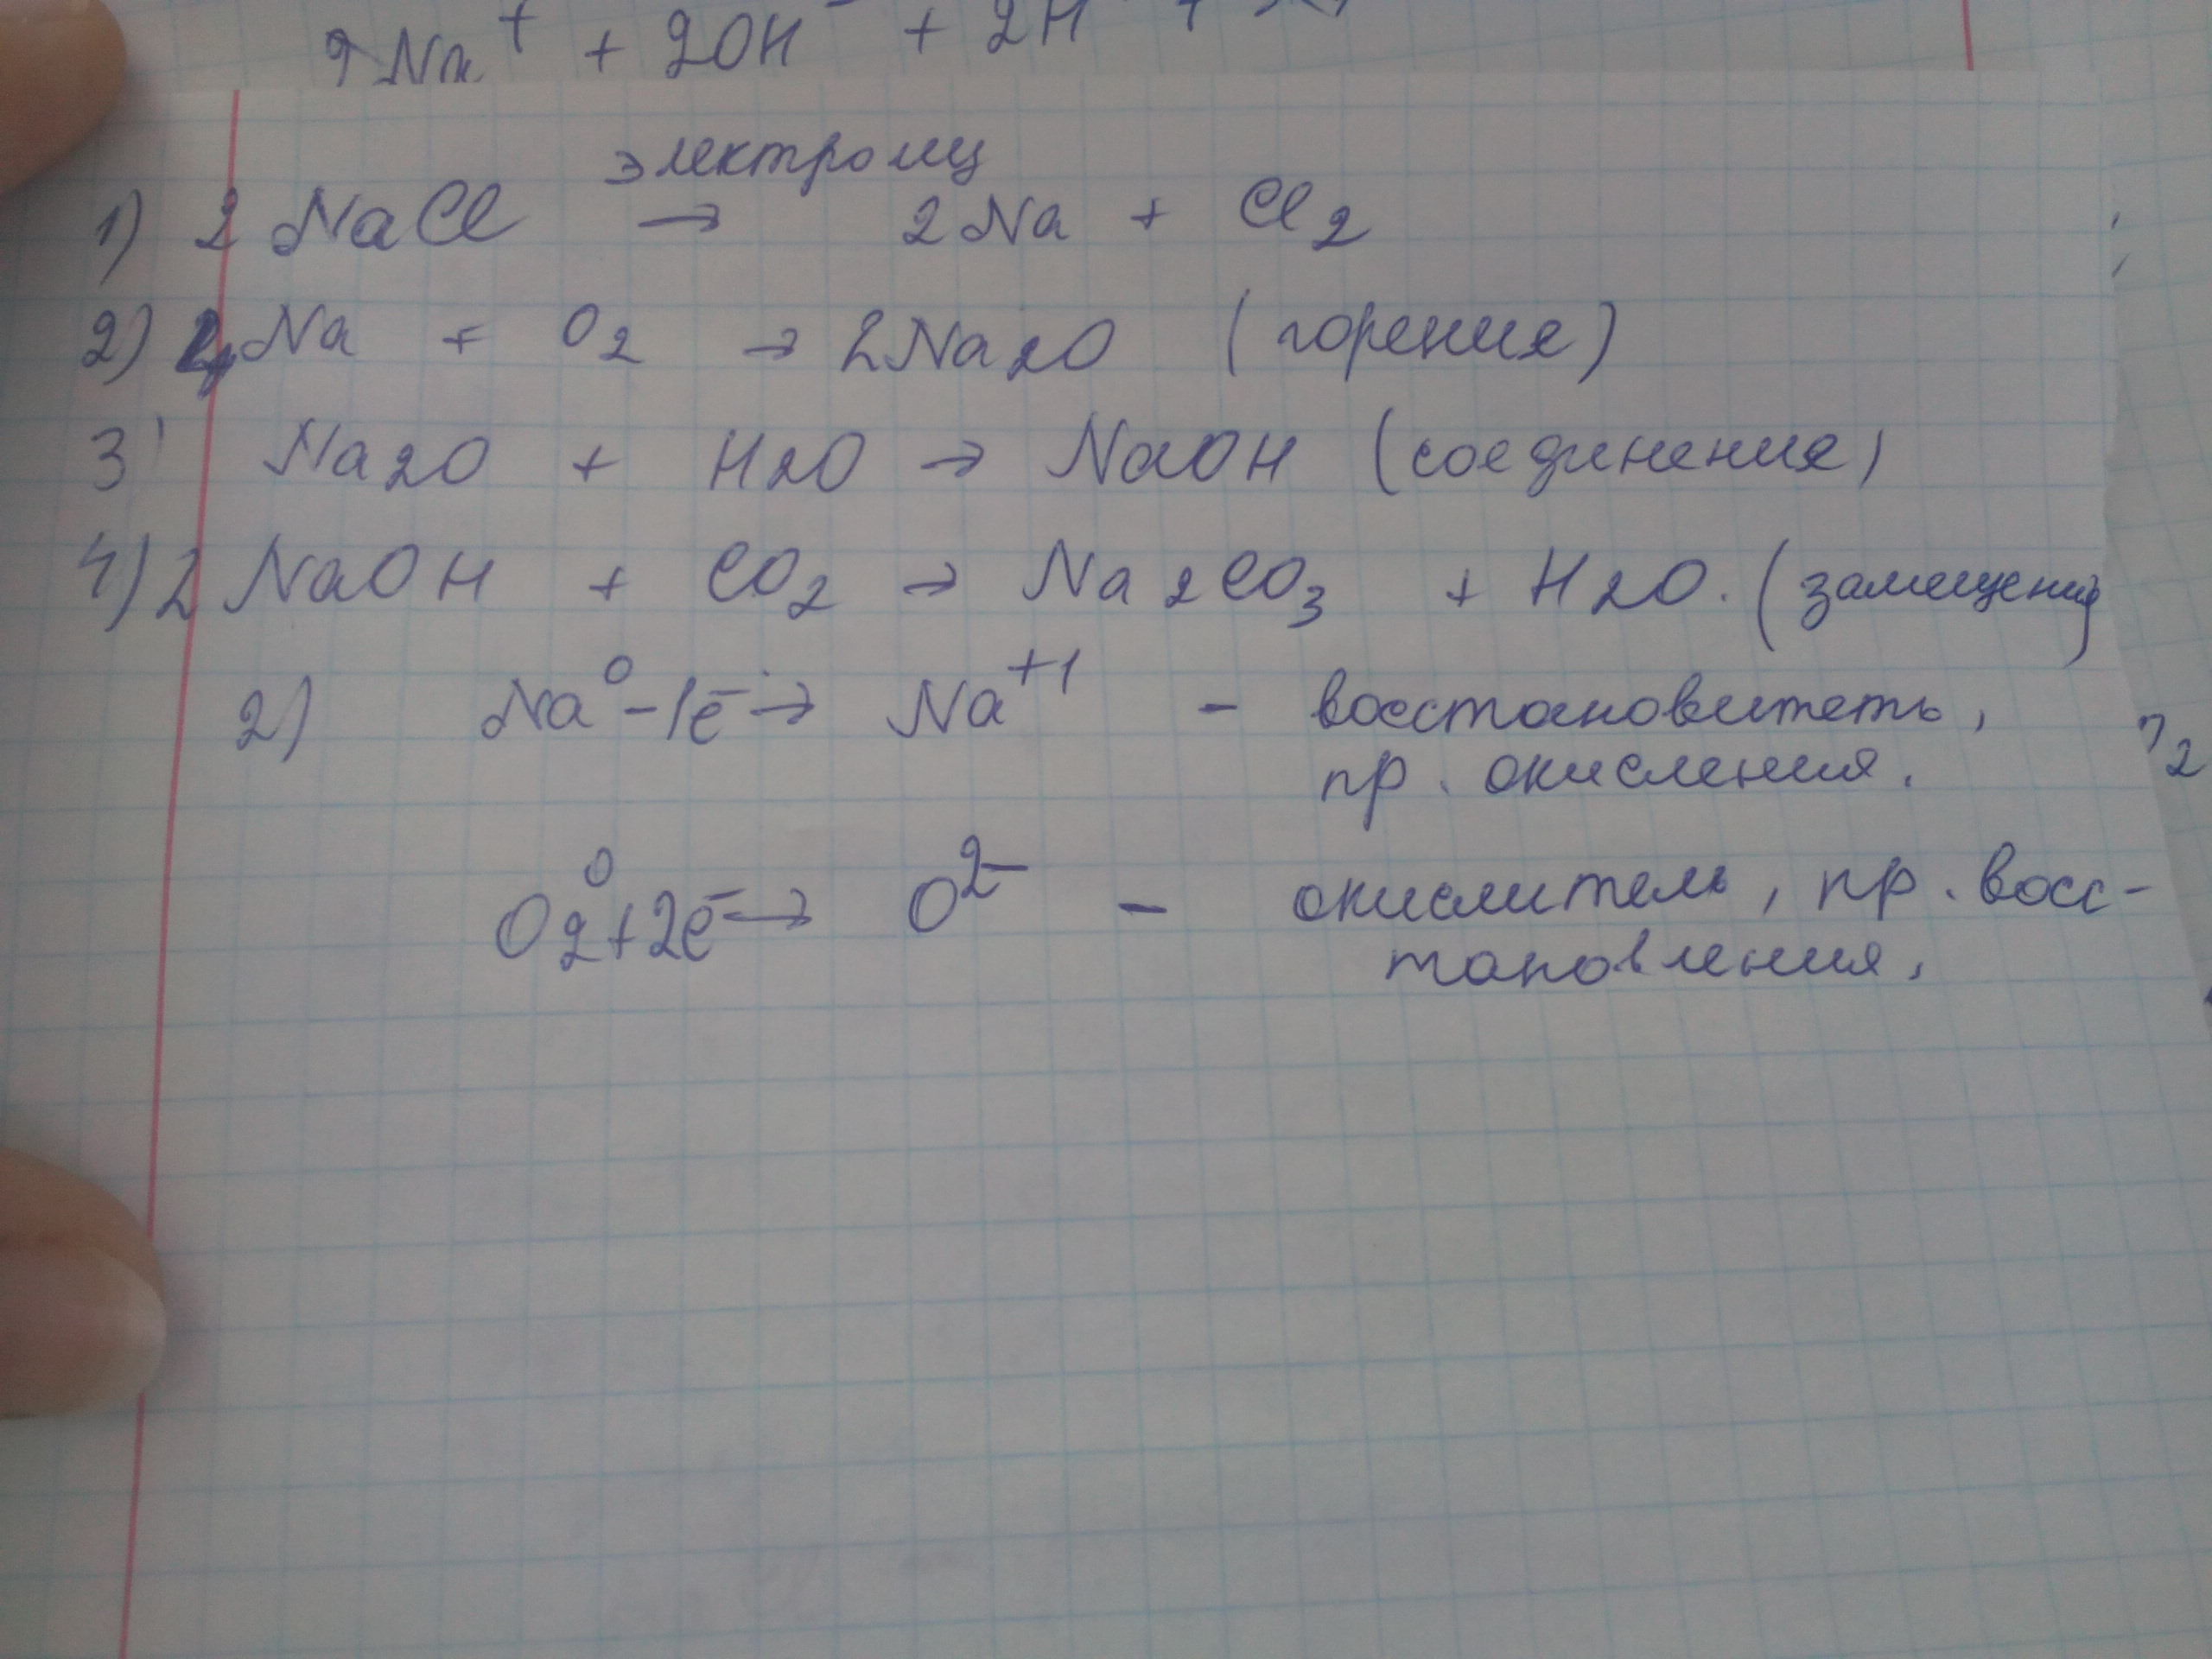 2Na⁺ + 2OH⁻ + 2H
электролиз
1) 2 NaCl → 2Na + Cl₂
2) 4Na + O₂ → 2Na₂O (горения)
3) Na₂O + H₂O → NaOH (соединения)
4) 2 NaOH + CO₂ → Na₂CO₃ + H₂O. (замещения)
2) Na⁰ - 1e⁻ → Na⁺¹ - восстановитеть,
пр. окисления.
O₂⁰ + 2e⁻ → O²⁻ - окислитель, пр. восс-
тановления,